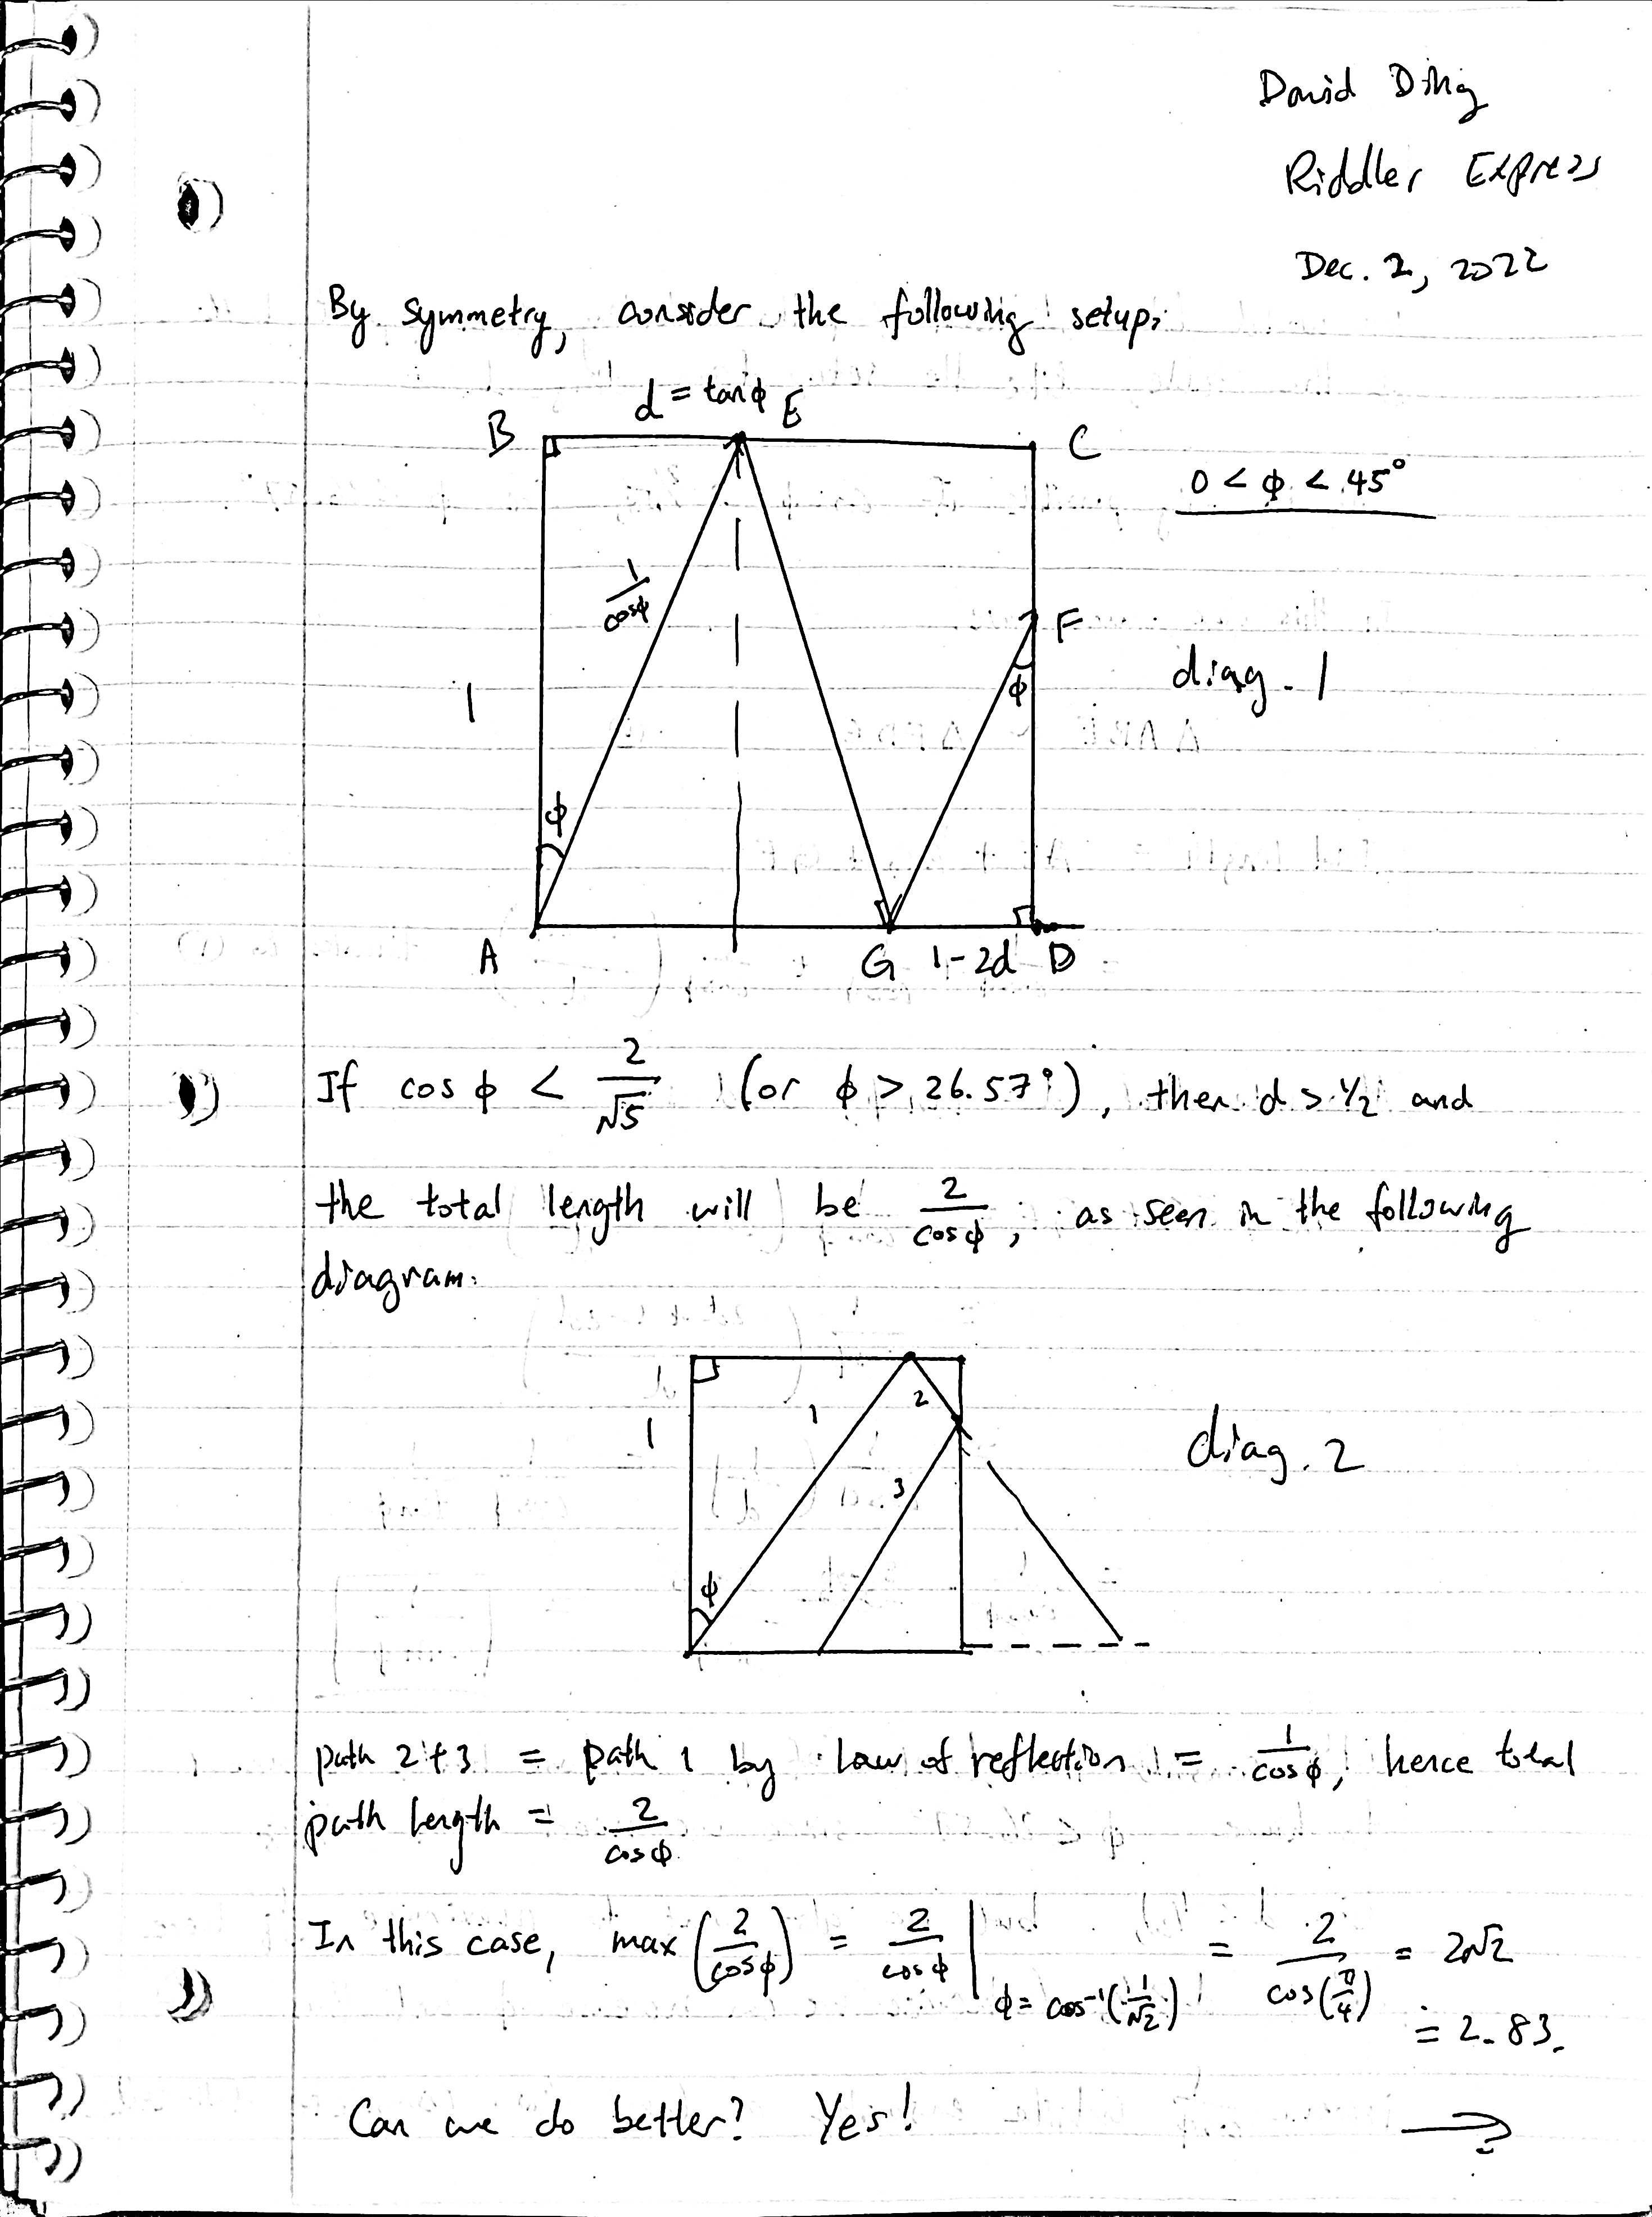 David Ding
Riddler Express
Dec. 2, 2022
By symmetry, consider the following setup:
d = tanϕ E
B
C
0 < ϕ < 45°
1/cosϕ
F
ϕ
diag. 1
1
ϕ
A
G 1-2d D
If cos ϕ < 2/√5 (or ϕ > 26.57°), then d > 1/2 and
the total length will be 2/cosϕ, as seen in the following
diagram.
1
1
2
3
ϕ
diag. 2
path 2+3 = path 1 by law of reflection = 1/cosϕ, hence total
path length = 2/cosϕ
In this case, max(2/cosϕ) = 2/cosϕ | ϕ = cos⁻¹(1/√2) = 2/cos(π/4) = 2√2
= 2.83.
Can we do better? Yes! →